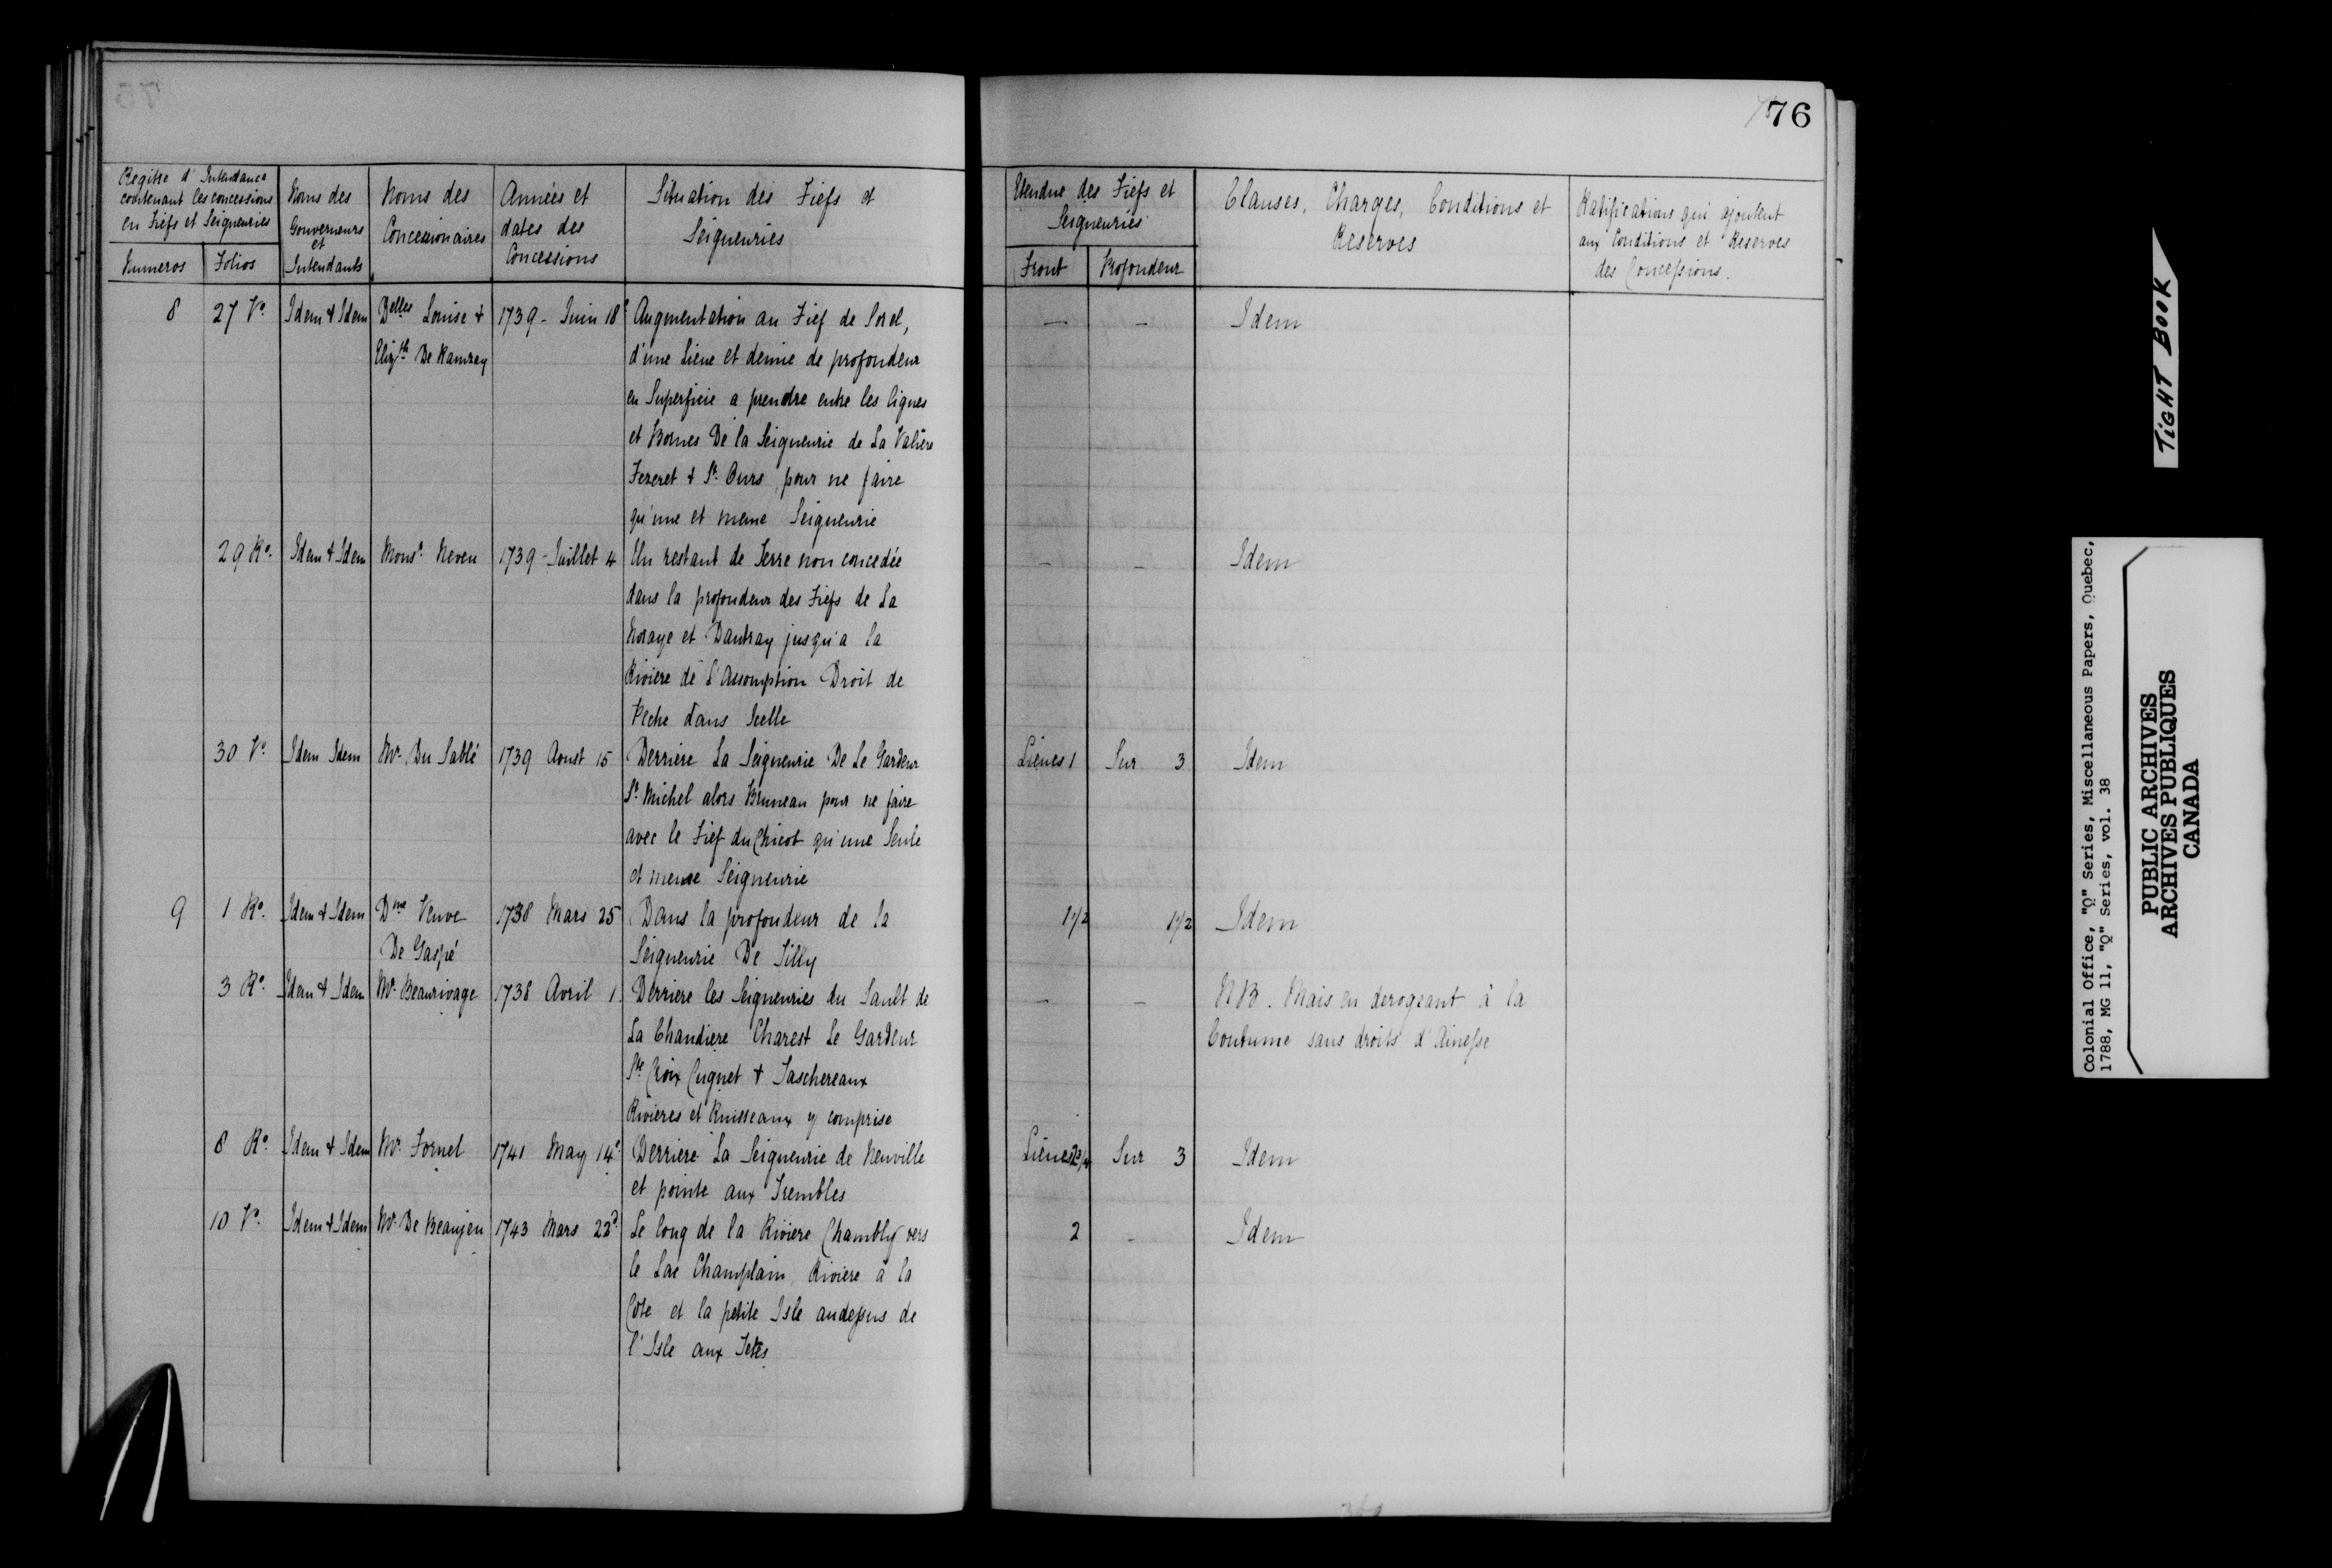 76
Regitre d'Intendance contenant les concessions en Fiefs et Seigneuries
Numeros
Folios
Noms des Gouverneurs et Intendants
Noms des Concessionaires
Années et dates des Concessions
Situation des Fiefs et Seigneuries
Etendue des Fiefs et Seigneuries
Front
Profondeur
Clauses, Charges, Conditions et Reserves
Ratifications qui ajoutent aux Conditions et Reserves des Concessions.
8 27 Vo. Idem & Idem Delles Louise & 1739 - Juin 18e Augmentation au Fief de Sorel, — — Idem
Elizth De Ramzay d'une Lieue et demie de profondeur
en Superficie a prendre entre les lignes
et Bornes De la Seigneurie de La Valiere
Fezeret & St. Ours, pour ne faire
qu'une et meme Seigneurie
29 Ro. Idem & Idem Monsr. Neveu 1739 - Juillet 4 Un restant de Terre non concedée — — Idem
dans la profondeur des Fiefs de La
Noraye et Dautray jusqu'a la
Riviere de L'Assomption Droit de
Peche dans Icelle
30 Vo. Idem Idem Mr. Du Sablé 1739 Aoust 15 Derriere La Seigneurie De Le Gardeur Lieues 1 Sur 3 Idem
St. Michel alors Bruneau pour ne faire
avec le Fief du Chicot qu'une Seule
et meme Seigneurie
9 1 Ro. Idem & Idem Dme Veuve 1738 Mars 25 Dans la profondeur de la 1 1/2 1 1/2 Idem
De Gaspé Seigneurie De Tilly
3 Ro. Idem & Idem Mr. Beaurivage 1738 Avril 1. Derriere les Seigneuries du Sault de — — NB. Mais en derogeant à la
La Chaudiere Charest Le Gardeur Coutume sans droits d'Ainesse
Ste Croix Cugnet & Taschereaux
Rivieres et Ruisseaux y comprise
8 Ro. Idem & Idem Mr. Fornel 1741 May 14e. Derriere La Seigneurie de Neuville Lieues 2 3/4 Sur 3 Idem
et pointe aux Trembles
10 Vo. Idem & Idem Mr. De Beaujeu 1743 Mars 22d. Le long de la Riviere Chambly vers 2 - Idem
le Lac Champlain, Riviere à la
Cole et la petite Isle audessus de
l'Isle aux Tetes
TIGHT BOOK
Colonial Office, "Q" Series, Miscellaneous Papers, Quebec,
1788, MG 11, "Q" Series, vol. 38
PUBLIC ARCHIVES
ARCHIVES PUBLIQUES
CANADA